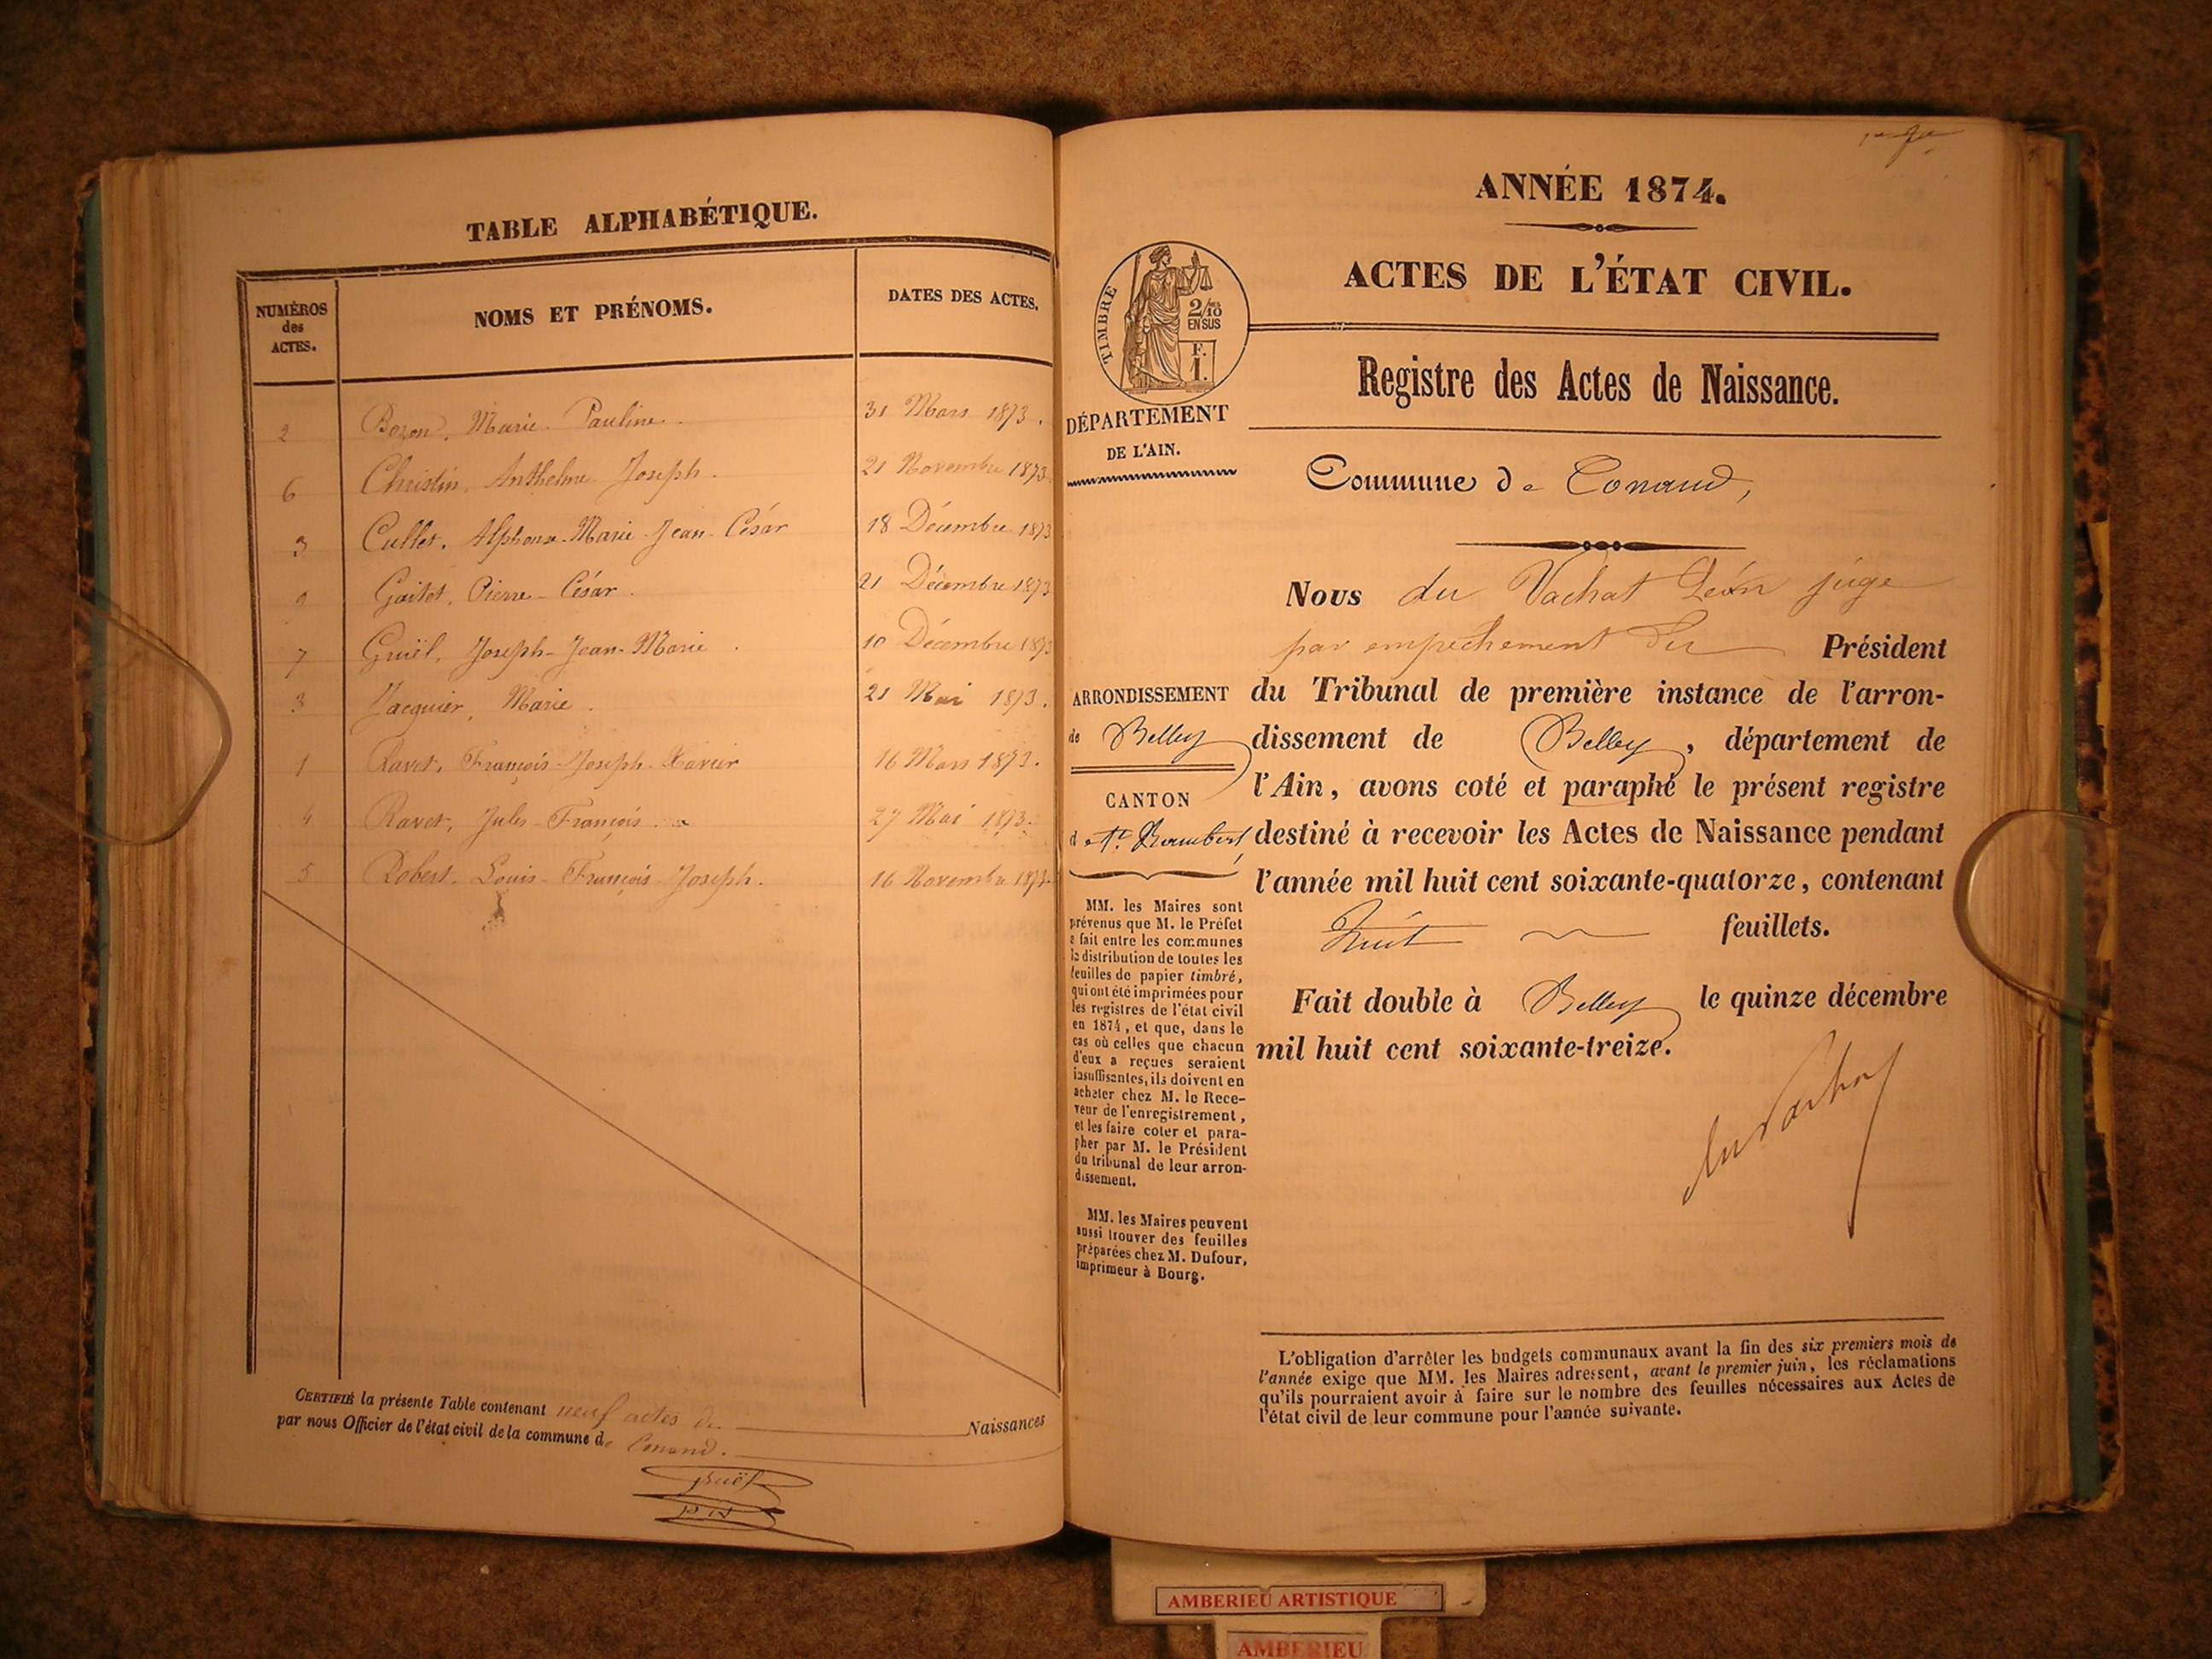 TABLE ALPHABÉTIQUE.
NUMÉROS des ACTES.
NOMS ET PRÉNOMS.
DATES DES ACTES.
2 Bozon, Marie Pauline. 31 Mars 1873.
6 Christin, Anthelme Joseph. 21 Novembre 1873
Cullet, Alphonse-Marie-Jean-César 18 Décembre 1873
9 Gaitet, Pierre-César. 21 Décembre 1873
7 Gruël, Joseph-Jean-Marie. 10 Décembre 1873
3 Jacquier, Marie. 21 Mai 1873.
1 Ravet, François-Joseph-Xavier 16 Mars 1873.
4 Ravet, Jules-François. 27 Mai 1873.
5 Robert, Louis-François-Joseph. 16 Novembre 1873.
CERTIFIÉ la présente Table contenant neuf actes de Naissances
par nous Officier de l'état civil de la commune de Conand.
ANNÉE 1874.
ACTES DE L'ÉTAT CIVIL.
TIMBRE
2/10
EN SUS
F.
1.
Registre des Actes de Naissance.
DÉPARTEMENT
DE L'AIN.
Commune de Conand,
Nous du Vachat Léon juge
par empêchement du Président
du Tribunal de première instance de l'arron-
dissement de Belley, département de
l'Ain, avons coté et paraphé le présent registre
destiné à recevoir les Actes de Naissance pendant
l'année mil huit cent soixante-quatorze, contenant
huit feuillets.
Fait double à Belley le quinze décembre
mil huit cent soixante-treize.
du Vachat
ARRONDISSEMENT
de Belley
CANTON
de St. Rambert
MM. les Maires sont
prévenus que M. le Préfet
a fait entre les communes
la distribution de toutes les
feuilles de papier timbré,
qui ont été imprimées pour
les registres de l'état civil
en 1874, et que, dans le
cas où celles que chacun
d'eux a reçues seraient
insuffisantes, ils doivent en
acheter chez M. le Rece-
veur de l'enregistrement,
et les faire coter et para-
pher par M. le Président
du tribunal de leur arron-
dissement.
MM. les Maires peuvent
aussi trouver des feuilles
préparées chez M. Dufour,
imprimeur à Bourg.
L'obligation d'arrêter les budgets communaux avant la fin des six premiers mois de
l'année exige que MM. les Maires adressent, avant le premier juin, les réclamations
qu'ils pourraient avoir à faire sur le nombre des feuilles nécessaires aux Actes de
l'état civil de leur commune pour l'année suivante.
AMBERIEU ARTISTIQUE
AMBERIEU